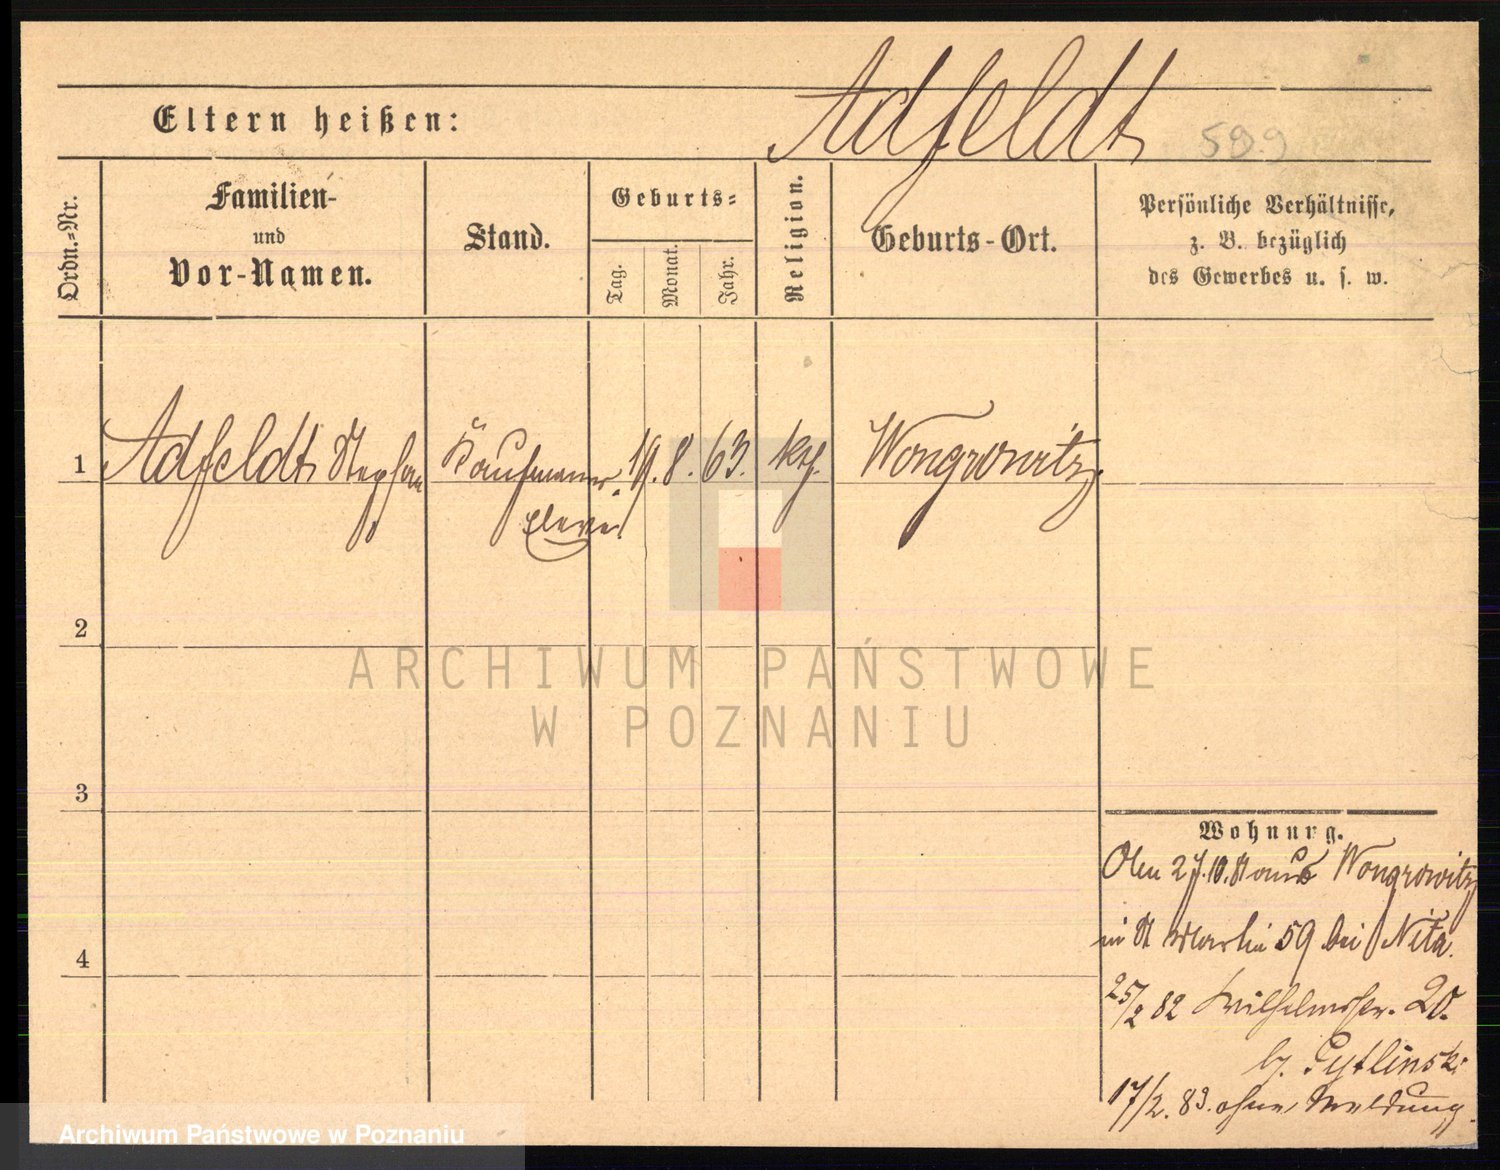 Adfeldt 599
Eltern heißen:
Ordn.-Nr.
Familien-
und
Vor-Namen.
Stand.
Geburts-
Tag.
Monat.
Jahr.
Religion.
Geburts-Ort.
Persönliche Verhältnisse,
z. B. bezüglich
des Gewerbes u. s. w.
1 Adfeldt Stephan Kaufmanns- 19. 8. 63. kth. Wongrowitz
Eleve
2
3
4
Wohnung.
27.10.81 aus Wongrowitz
in St Martin 59 bei Nita.
25/2 82 Wilhelmstr. 20.
b.
17/2. 83. ohne Meldung.
ARCHIWUM PAŃSTWOWE
W POZNANIU
Archiwum Państwowe w Poznaniu